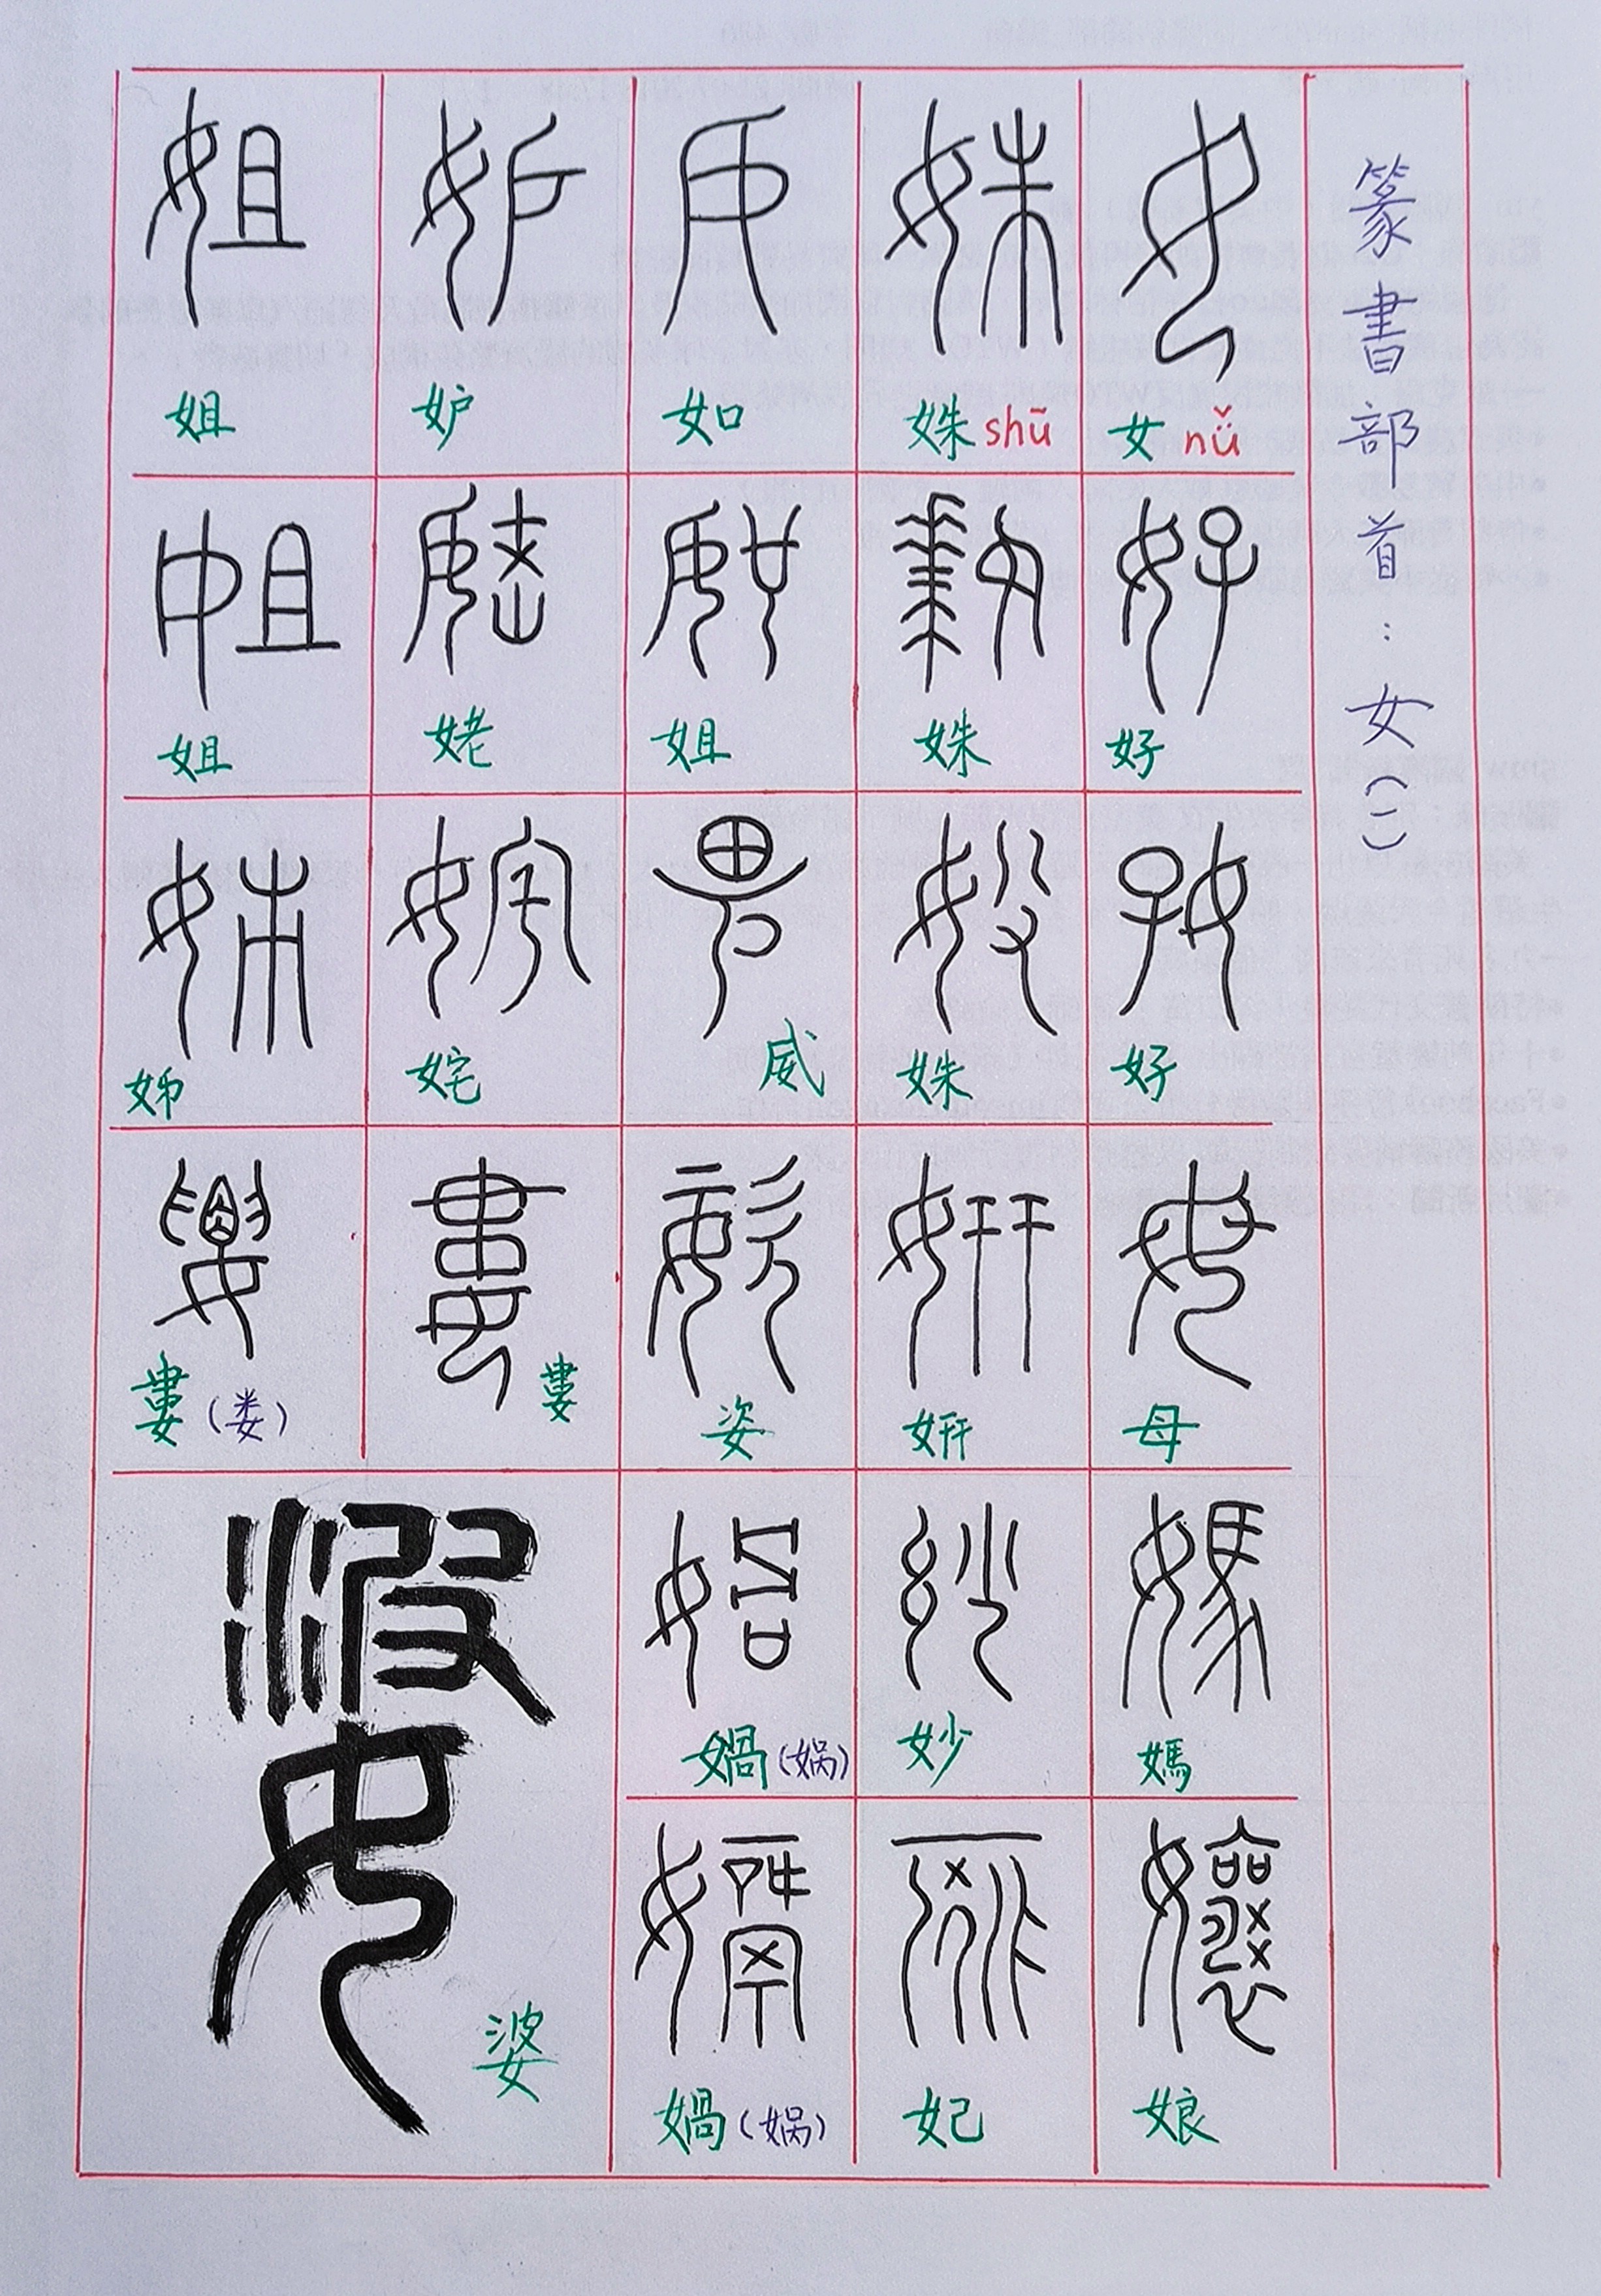 篆書部首：女（二）
女 nǚ
好
好
母
媽
娘
姝 shū
姝
姝
姸
妙
妃
如
姐
威
姿
媧（娲）
媧（娲）
妒
姥
姹
婁
姐
姐
姊
婁（娄）
婆